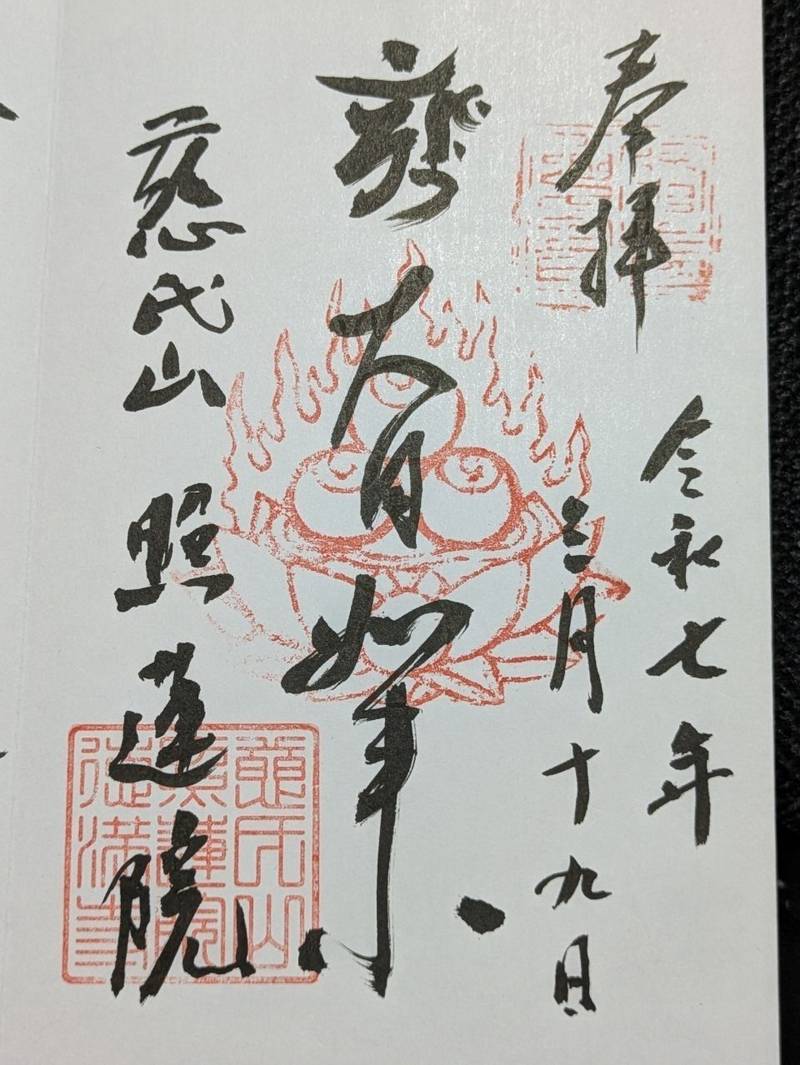 奉拝
令和七年
三月十九日
大日如来
慈氏山 照蓮院
慈氏山
照蓮院
満寺